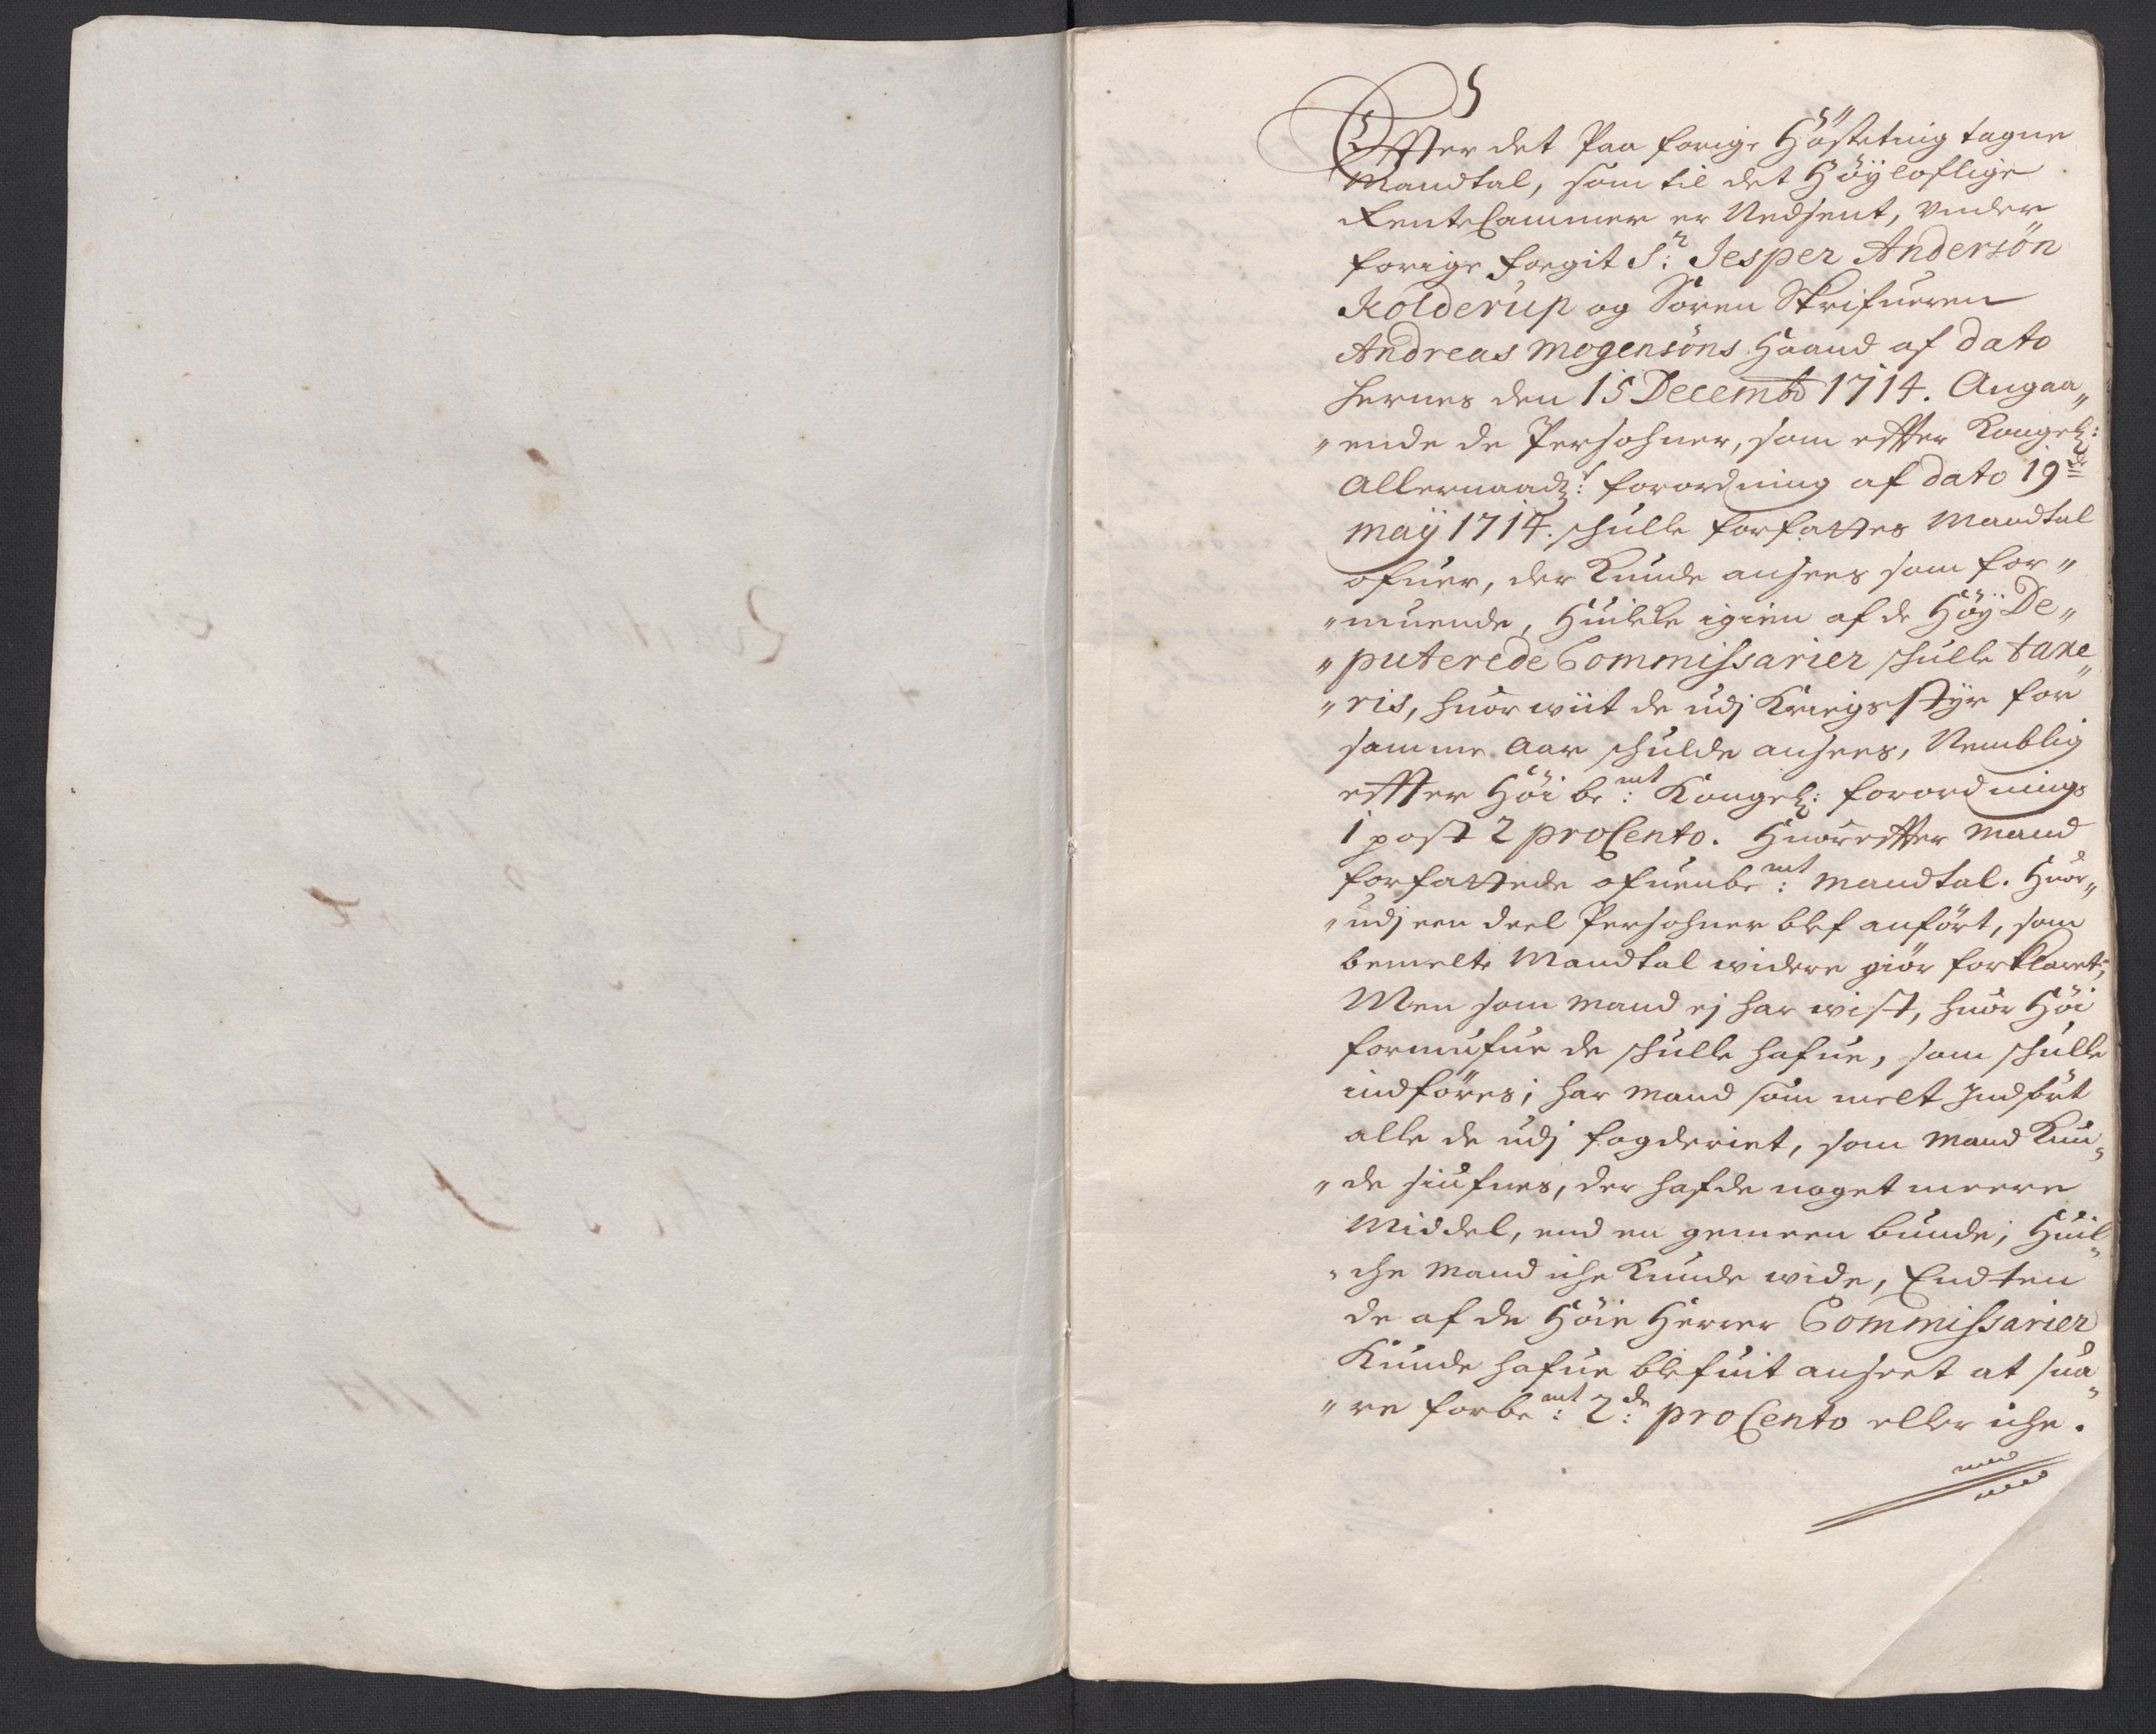 Effter det Paa forige Høsteting tagne
Mandtal, som til det Høyloflige
RenteCammer er Nedsent, under
forige fogit Sr: Jesper Andersøn
Kolderup og Soren Skrifueren
Andreas Mogensøns Haand af dato
Hernes den 15 Decembr 1714. Angaa„
„ende de Persohner, som effter Kongel:
Allernaadst: forordning af dato 19de
may 1714. schulle forfattes Mandtal
ofuer, der Kunde ansees som for„
„muende, Huilke igien af de Høy De„
„puterede Commissarier schulle taxe„
„ris, huor wiit de udj Kriegs Styr for
samme Aar schulde ansees, Nemblig
effter Høi bemt: Kongel: forordnings
1 post 2 pro Cento. Huoreffter Mand
forfattede ofuenbemt: Mandtal. Huor„
„udj een deel Persohner blef anført, som
bemelte Mandtal widere giør forklaret,
Men som Mand ej har wist, huor Høi
formufue de schulle hafue, som schulle
indføres; har Mand som melt Indført
alle de udj fogderiet, som Mand Kun„
„de siufnes, der hafde noget meere
Middel, end en gemeen bunde, Huil„
„che Mand iche Kunde wide, Endten
de af de Høie Herrer Commissarier
Kunde hafue blefuit anseet at sua„
„re forbemt: 2de: pro Cento eller iche.